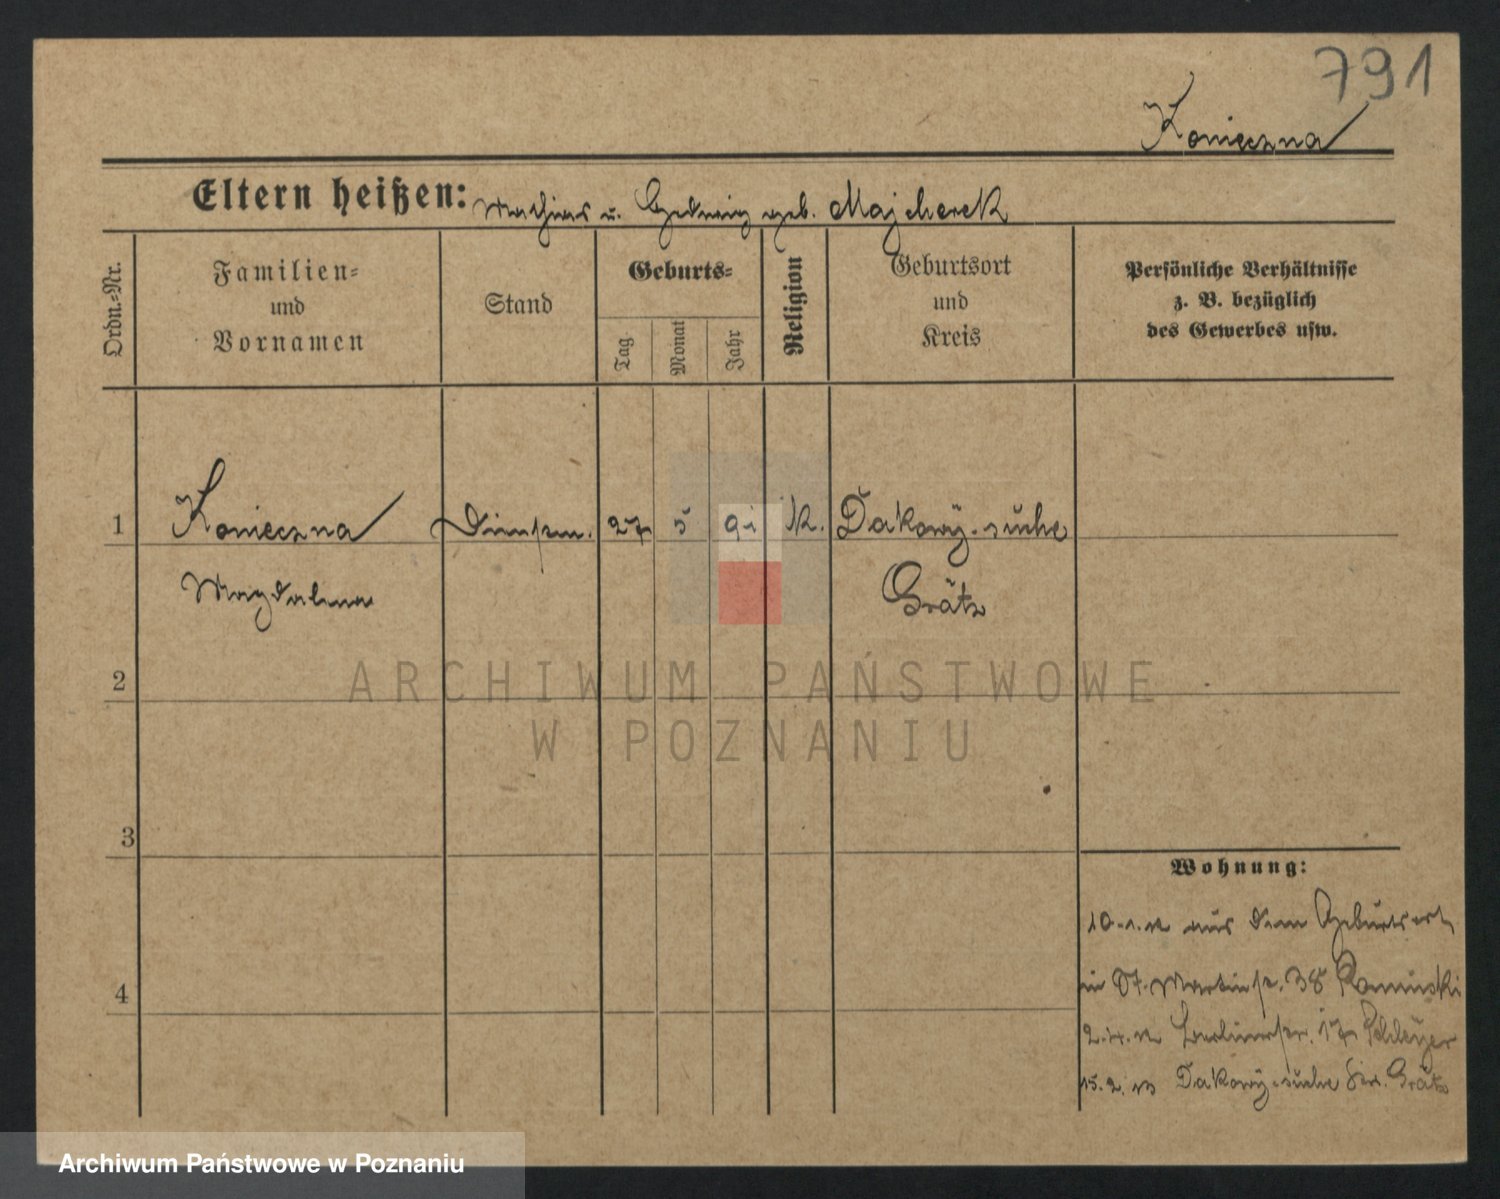 791
Konieczna
Eltern heißen: Mathias u. Hedwig geb. Majcherek
Ordn.-Nr.
Familien-
und
Vornamen
Stand
Geburts-
Tag
Monat
Jahr
Religion
Geburtsort
und
Kreis
Persönliche Verhältnisse
z. B. bezüglich
des Gewerbes usw.
1 Konieczna 27 5 91 k. Dakowy-suche
Magdalena Grätz
2
3
4
Wohnung:
10.1.12 aus dem Geburtsort
in St. Martinstr. 38 Kaminski
2.4.12 Berlinerstr. 17 Schleyer
15.2.13 Dakowy-suche Grätz
ARCHIWUM PAŃSTWOWE
W POZNANIU
Archiwum Państwowe w Poznaniu